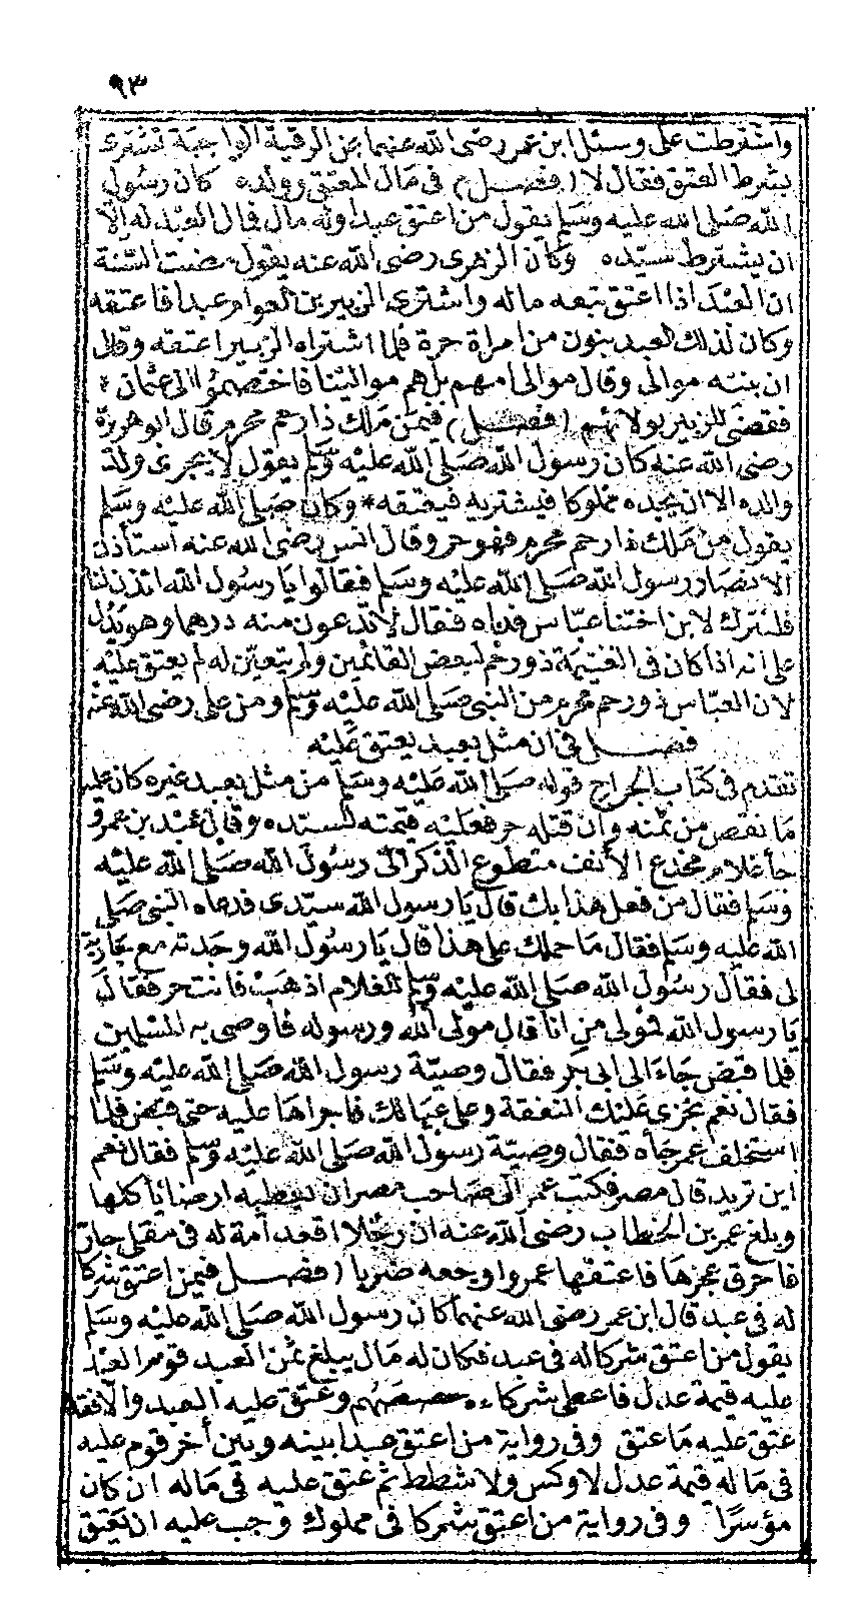 ٩٣
واشترطت على وسئل ابن عمر رضى الله عنهما عن الرقبة الواجبة تشترى
بشرط العتق فقال لا (فصل) فى مال المعتق وولده كان رسول
الله صلى الله عليه وسلم يقول من اعتق عبدا وله مال فمال العبد له الا
ان يشترط سيده وكان الزهرى رضى الله عنه يقول مضت السنة
ان العبد اذا اعتق تبعه ماله واشترى الزبير بن العوام عبدا فاعتقه
وكان لذلك العبد بنون من امراة حرة فلما اشتراه الزبير اعتقه وقال
ان بنيه موالى وقال موالى امهم بل هم موالينا فاختصموا الى عثمان
فقضى للزبير بولائهم (فصل) فيمن ملك ذا رحم محرم قال ابو هريرة
رضى الله عنه كان رسول الله صلى الله عليه وسلم يقول لا يجزى ولد
والده الا ان يجده مملوكا فيشتريه فيعتقه * وكان صلى الله عليه وسلم
يقول من ملك ذا رحم محرم فهو حر وقال انس رضى الله عنه استأذن
الانصار رسول الله صلى الله عليه وسلم فقالوا يا رسول الله ائذن لنا
فلنترك لابن اختنا عباس فداه فقال لا تدعون منه درهما وهو يدل
على انه اذا كان فى الغنيمة ذو رحم لبعض الغانمين ولم يتعين له لم يعتق عليه
لان العباس ذو رحم محرم من النبى صلى الله عليه وسلم ومن على رضى الله عنه
فصل فى ان من مثل بعبد يعتق عليه
تقدم فى كتاب الجراح قوله صلى الله عليه وسلم من مثل بعبد غيره كان عليه
ما نقص من ثمنه وان قتله حر فعليه قيمته لسيده وقال عبد بن عمرو
جأ غلام مجدع الأنف مقطوع الذكر الى رسول الله صلى الله عليه
وسلم فقال من فعل هذا بك قال يا رسول الله سيدى فدعاه النبى صلى
الله عليه وسلم فقال ما حملك على هذا قال يا رسول الله وجدته مع جارية
لى فقال رسول الله صلى الله عليه وسلم للغلام اذهب فانت حر فقال
يا رسول الله فمولى من انا قال مولى الله ورسوله فأوصى به المسلمين
فلما قبض جاء الى ابى بكر فقال وصية رسول الله صلى الله عليه وسلم
فقال نعم نجزى عليك النفقة وعلى عيالك فاجراها عليه حتى قبض فلما
استخلف عمر جأه فقال وصية رسول الله صلى الله عليه وسلم فقال نعم
اين تريد قال مصر فكتب عمر الى صاحب مصر ان يعطيه ارضا يأكلها
وبلغ عمر بن الخطاب رضى الله عنه ان رجلا اقعد أمة له فى مقلى حار
فاحرق عجزها فاعتقها عمر واوجعه ضربا (فصل فيمن اعتق شركا
له فى عبد قال ابن عمر رضى الله عنهما كان رسول الله صلى الله عليه وسلم
يقول من اعتق شركا له فى عبد فكان له مال يبلغ ثمن العبد قوم العبد
عليه قيمة عدل فاعطى شركاءه حصصهم وعتق عليه العبد والا فقد
عتق عليه ما عتق وفى رواية من اعتق عبدا بينه وبين أخر قوم عليه
فى ماله قيمة عدل لا وكس ولا شطط ثم عتق عليه فى ماله ان كان
مؤسرا وفى رواية من اعتق شركا فى مملوك وجب عليه ان يعتق